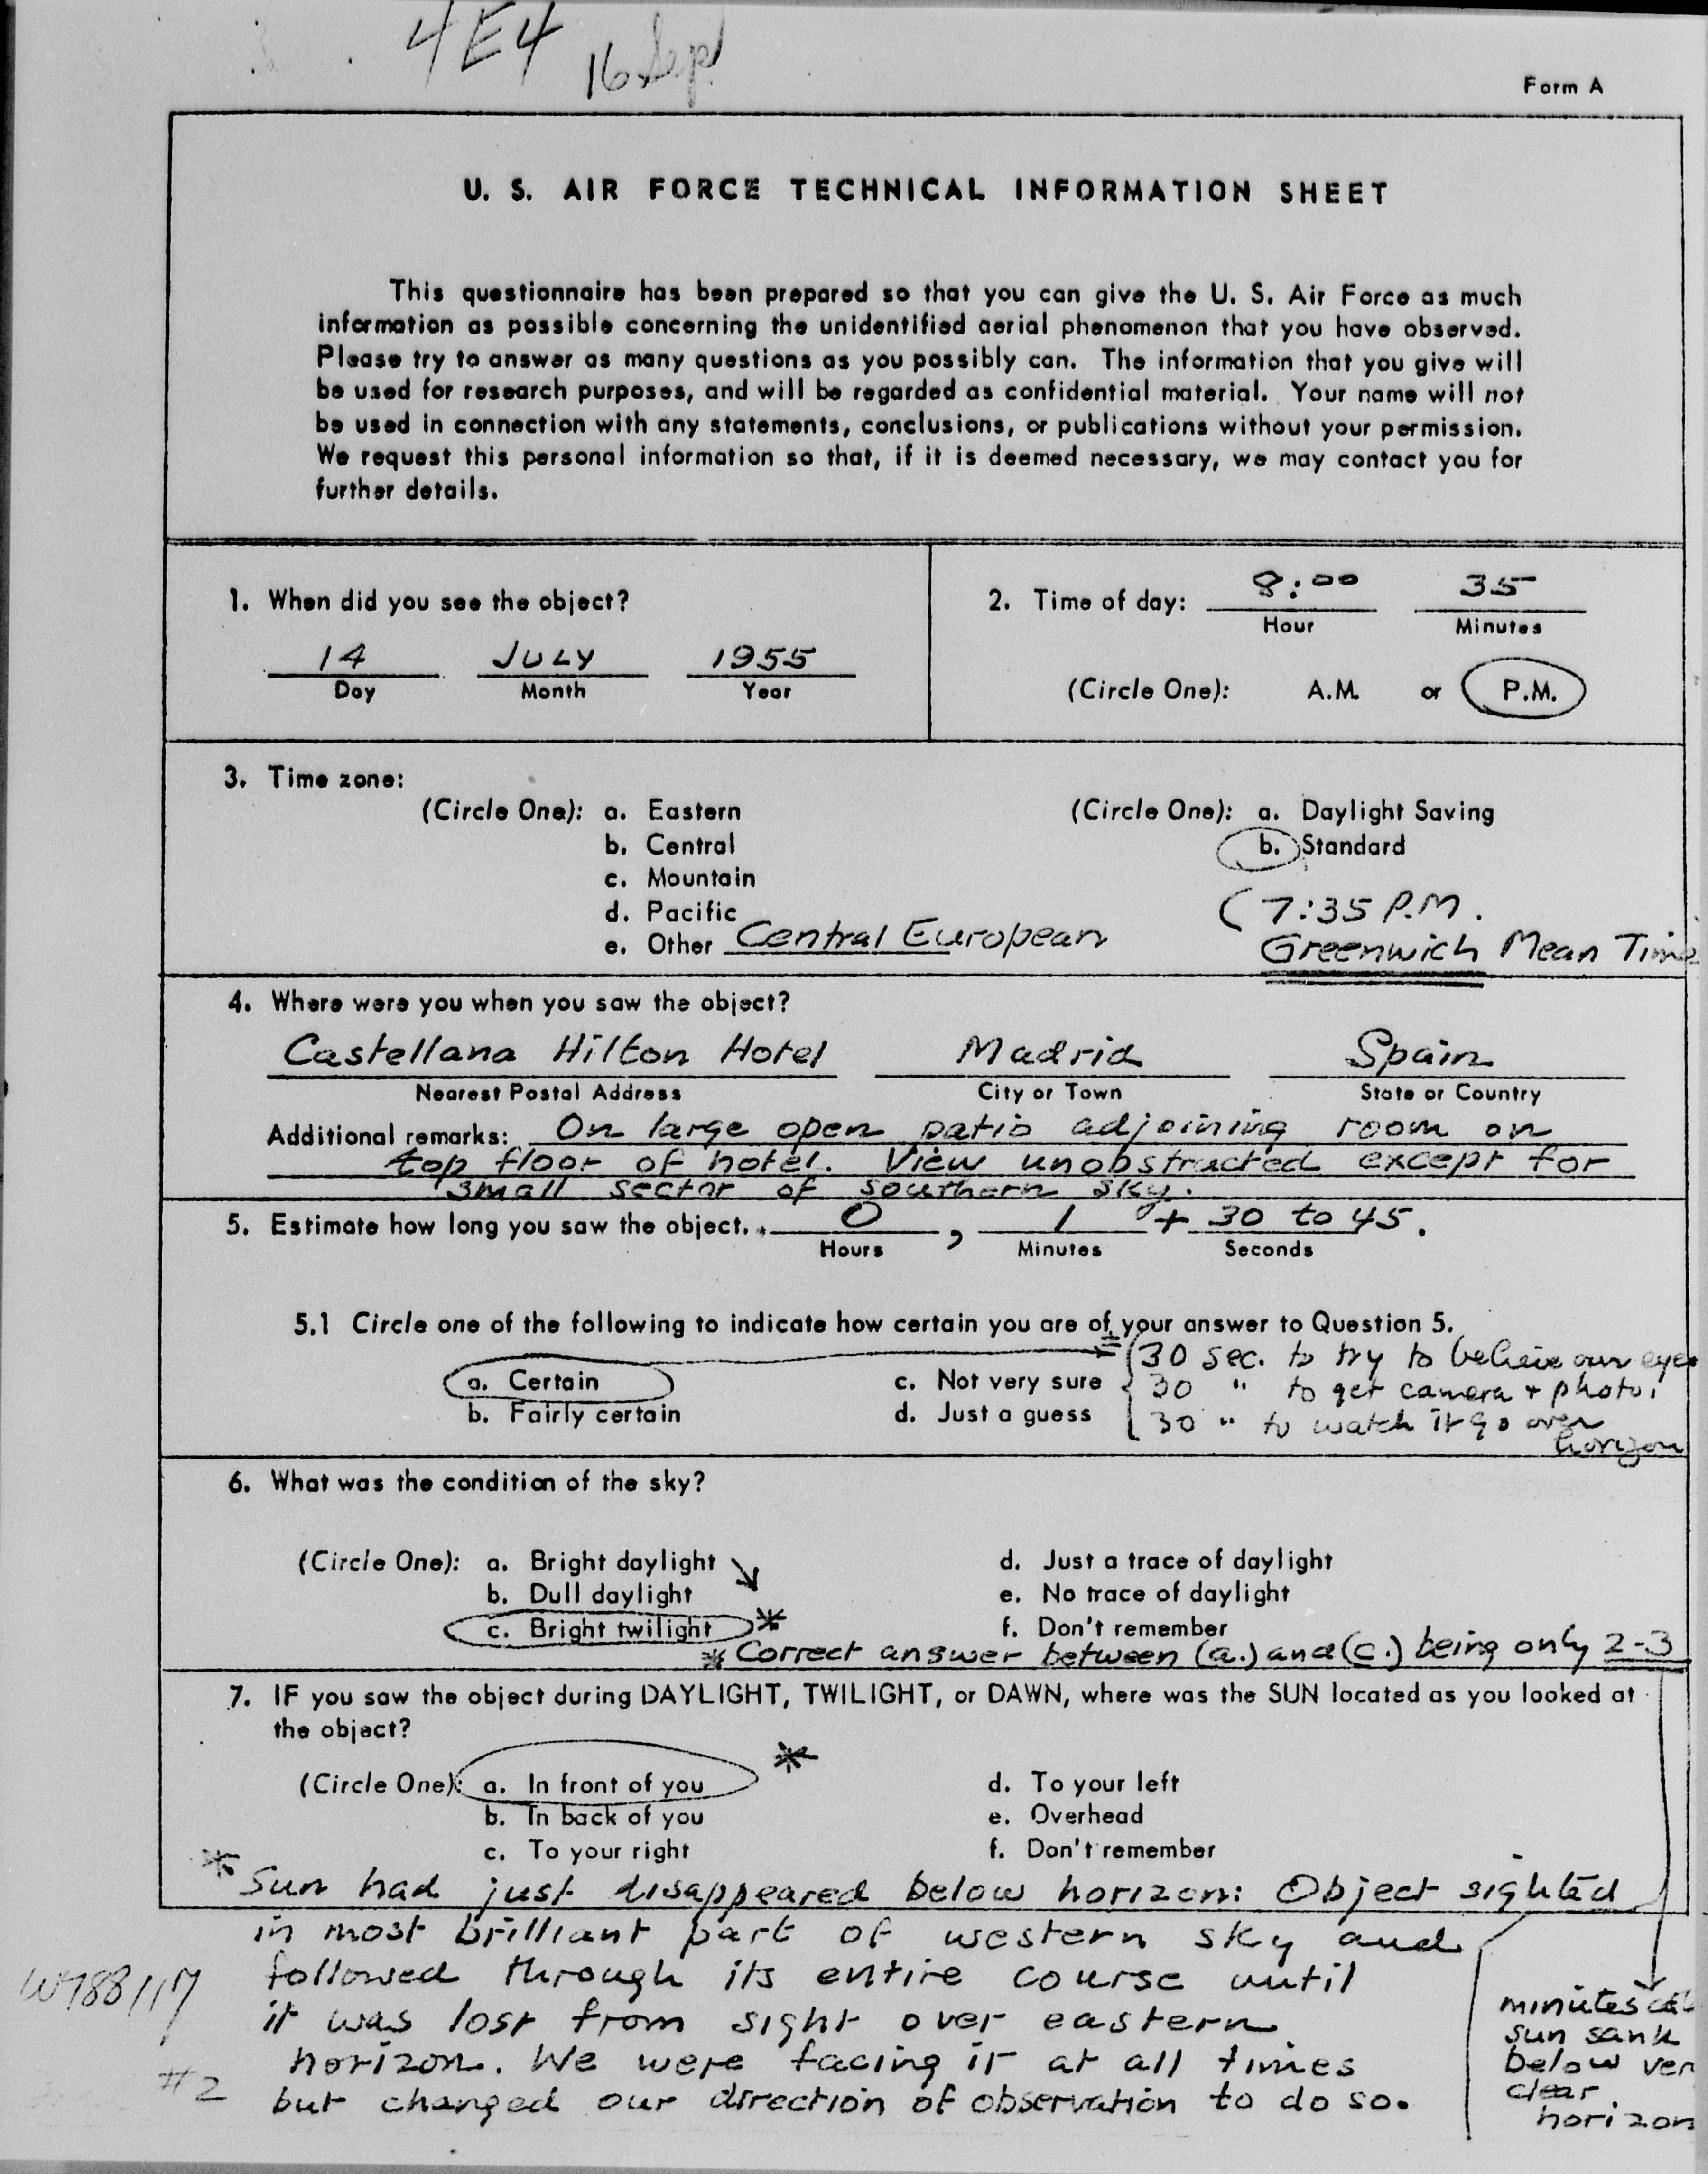 4E4 16 Sept
Form A
U. S. AIR FORCE TECHNICAL INFORMATION SHEET
This questionnaire has been prepared so that you can give the U. S. Air Force as much
information as possible concerning the unidentified aerial phenomenon that you have observed.
Please try to answer as many questions as you possibly can. The information that you give will
be used for research purposes, and will be regarded as confidential material. Your name will not
be used in connection with any statements, conclusions, or publications without your permission.
We request this personal information so that, if it is deemed necessary, we may contact you for
further details.
1. When did you see the object?
14 JULY 1955
Day Month Year
2. Time of day: 8:00 35
Hour Minutes
(Circle One): A.M. or P.M.
3. Time zone:
(Circle One): a. Eastern
b. Central
c. Mountain
d. Pacific
e. Other Central European
(Circle One): a. Daylight Saving
b. Standard
(7:35 P.M.
Greenwich Mean Time
4. Where were you when you saw the object?
Castellana Hilton Hotel Madrid Spain
Nearest Postal Address City or Town State or Country
Additional remarks: On large open patio adjoining room on
top floor of hotel. View unobstructed except for
small sector of southern sky.
5. Estimate how long you saw the object. 0 , 1 + 30 to 45.
Hours Minutes Seconds
5.1 Circle one of the following to indicate how certain you are of your answer to Question 5.
a. Certain
b. Fairly certain
c. Not very sure
d. Just a guess
= 30 sec. to try to believe our eyes
30 " to get camera + photo.
30 " to watch it go over
horizon
6. What was the condition of the sky?
(Circle One): a. Bright daylight
b. Dull daylight
c. Bright twilight *
d. Just a trace of daylight
e. No trace of daylight
f. Don't remember
* Correct answer between (a.) and (c.) being only 2-3
7. IF you saw the object during DAYLIGHT, TWILIGHT, or DAWN, where was the SUN located as you looked at
the object?
(Circle One): a. In front of you *
b. In back of you
c. To your right
d. To your left
e. Overhead
f. Don't remember
* Sun had just disappeared below horizon: Object sighted
in most brilliant part of western sky and
followed through its entire course until
it was lost from sight over eastern
horizon. We were facing it at all times
but changed our direction of observation to do so.
minutes
sun sank
below
clear
horizon
#2